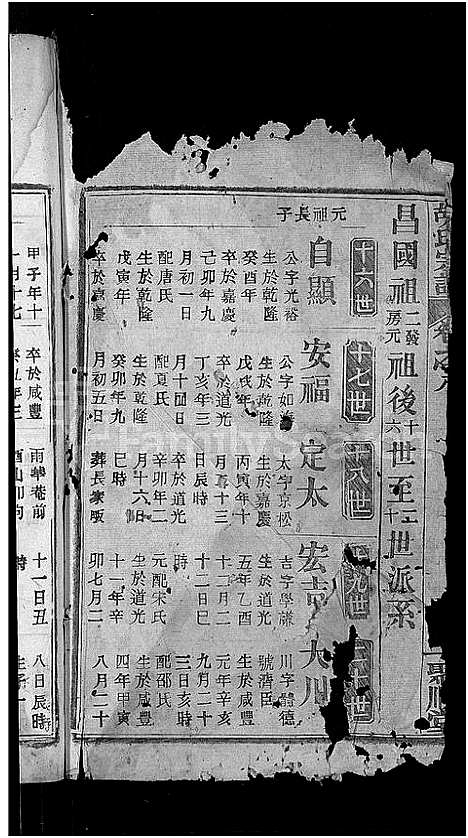 胡氏宗譜
昌國祖二房發元祖後十六世至二十世派系
十六世 十七世 十八世 十九世 二十世
元祖長子
自顯 安福 定太 宏吉 大川
公字光裕
生於乾隆
癸酉年
卒於嘉慶
己卯年九
月初一日
配唐氏
生於乾隆
戊寅年
卒於嘉慶
公字如
生於乾隆
戊戌年
卒於道光
丁亥年三
月十四日
配夏氏
生於乾隆
癸卯年九
月初五日
太字京松
生於嘉慶
丙寅年十
月十三
日辰時
卒於道光
辛卯年二
月十六日
巳時
葬長家畈
吉字學謙
生於道光
五年乙酉
十二月二
十二日巳
時
元配宋氏
生於道光
十一年辛
卯七月二
川字懿德
號濟臣
生於咸豐
元年辛亥
九月二十
三日亥時
配邵氏
生於咸豐
四年甲寅
八月二十
甲子年十
一月十七
卒於咸豐
雨華菴前
酉山卯向
十一日丑
時
八日辰時